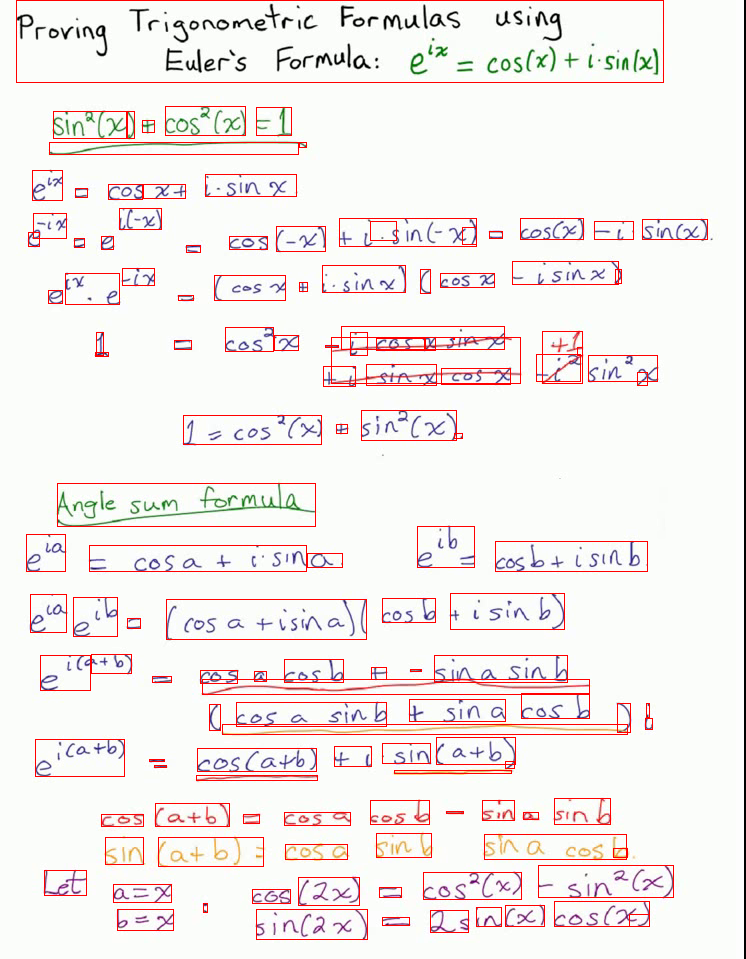 Proving Trigonometric Formulas using
Euler's Formula: e^{ix} = cos(x) + i·sin(x)
sin²(x) + cos²(x) = 1
e^{ix} = cos x + i·sin x
e^{-ix} = e^{i(-x)} = cos(-x) + i·sin(-x) = cos(x) - i sin(x).
e^{ix} · e^{-ix} = (cos x + i·sin x)(cos x - i sin x)
1 = cos²x - i cos x sin x +1
+ i sin x cos x - i² sin²x
1 = cos²(x) + sin²(x).
Angle sum formula
e^{ia} = cos a + i·sin a. e^{ib} = cos b + i sin b
e^{ia} e^{ib} = (cos a + i sin a)(cos b + i sin b)
e^{i(a+b)} = cos a cos b + - sin a sin b
(cos a sin b + sin a cos b) i
e^{i(a+b)} = cos(a+b) + i sin(a+b)
cos(a+b) = cos a cos b - sin a sin b
sin(a+b) = cos a sin b sin a cos b.
Let a = x : cos(2x) = cos²(x) - sin²(x)
b = x sin(2x) = 2sin(x) cos(x)